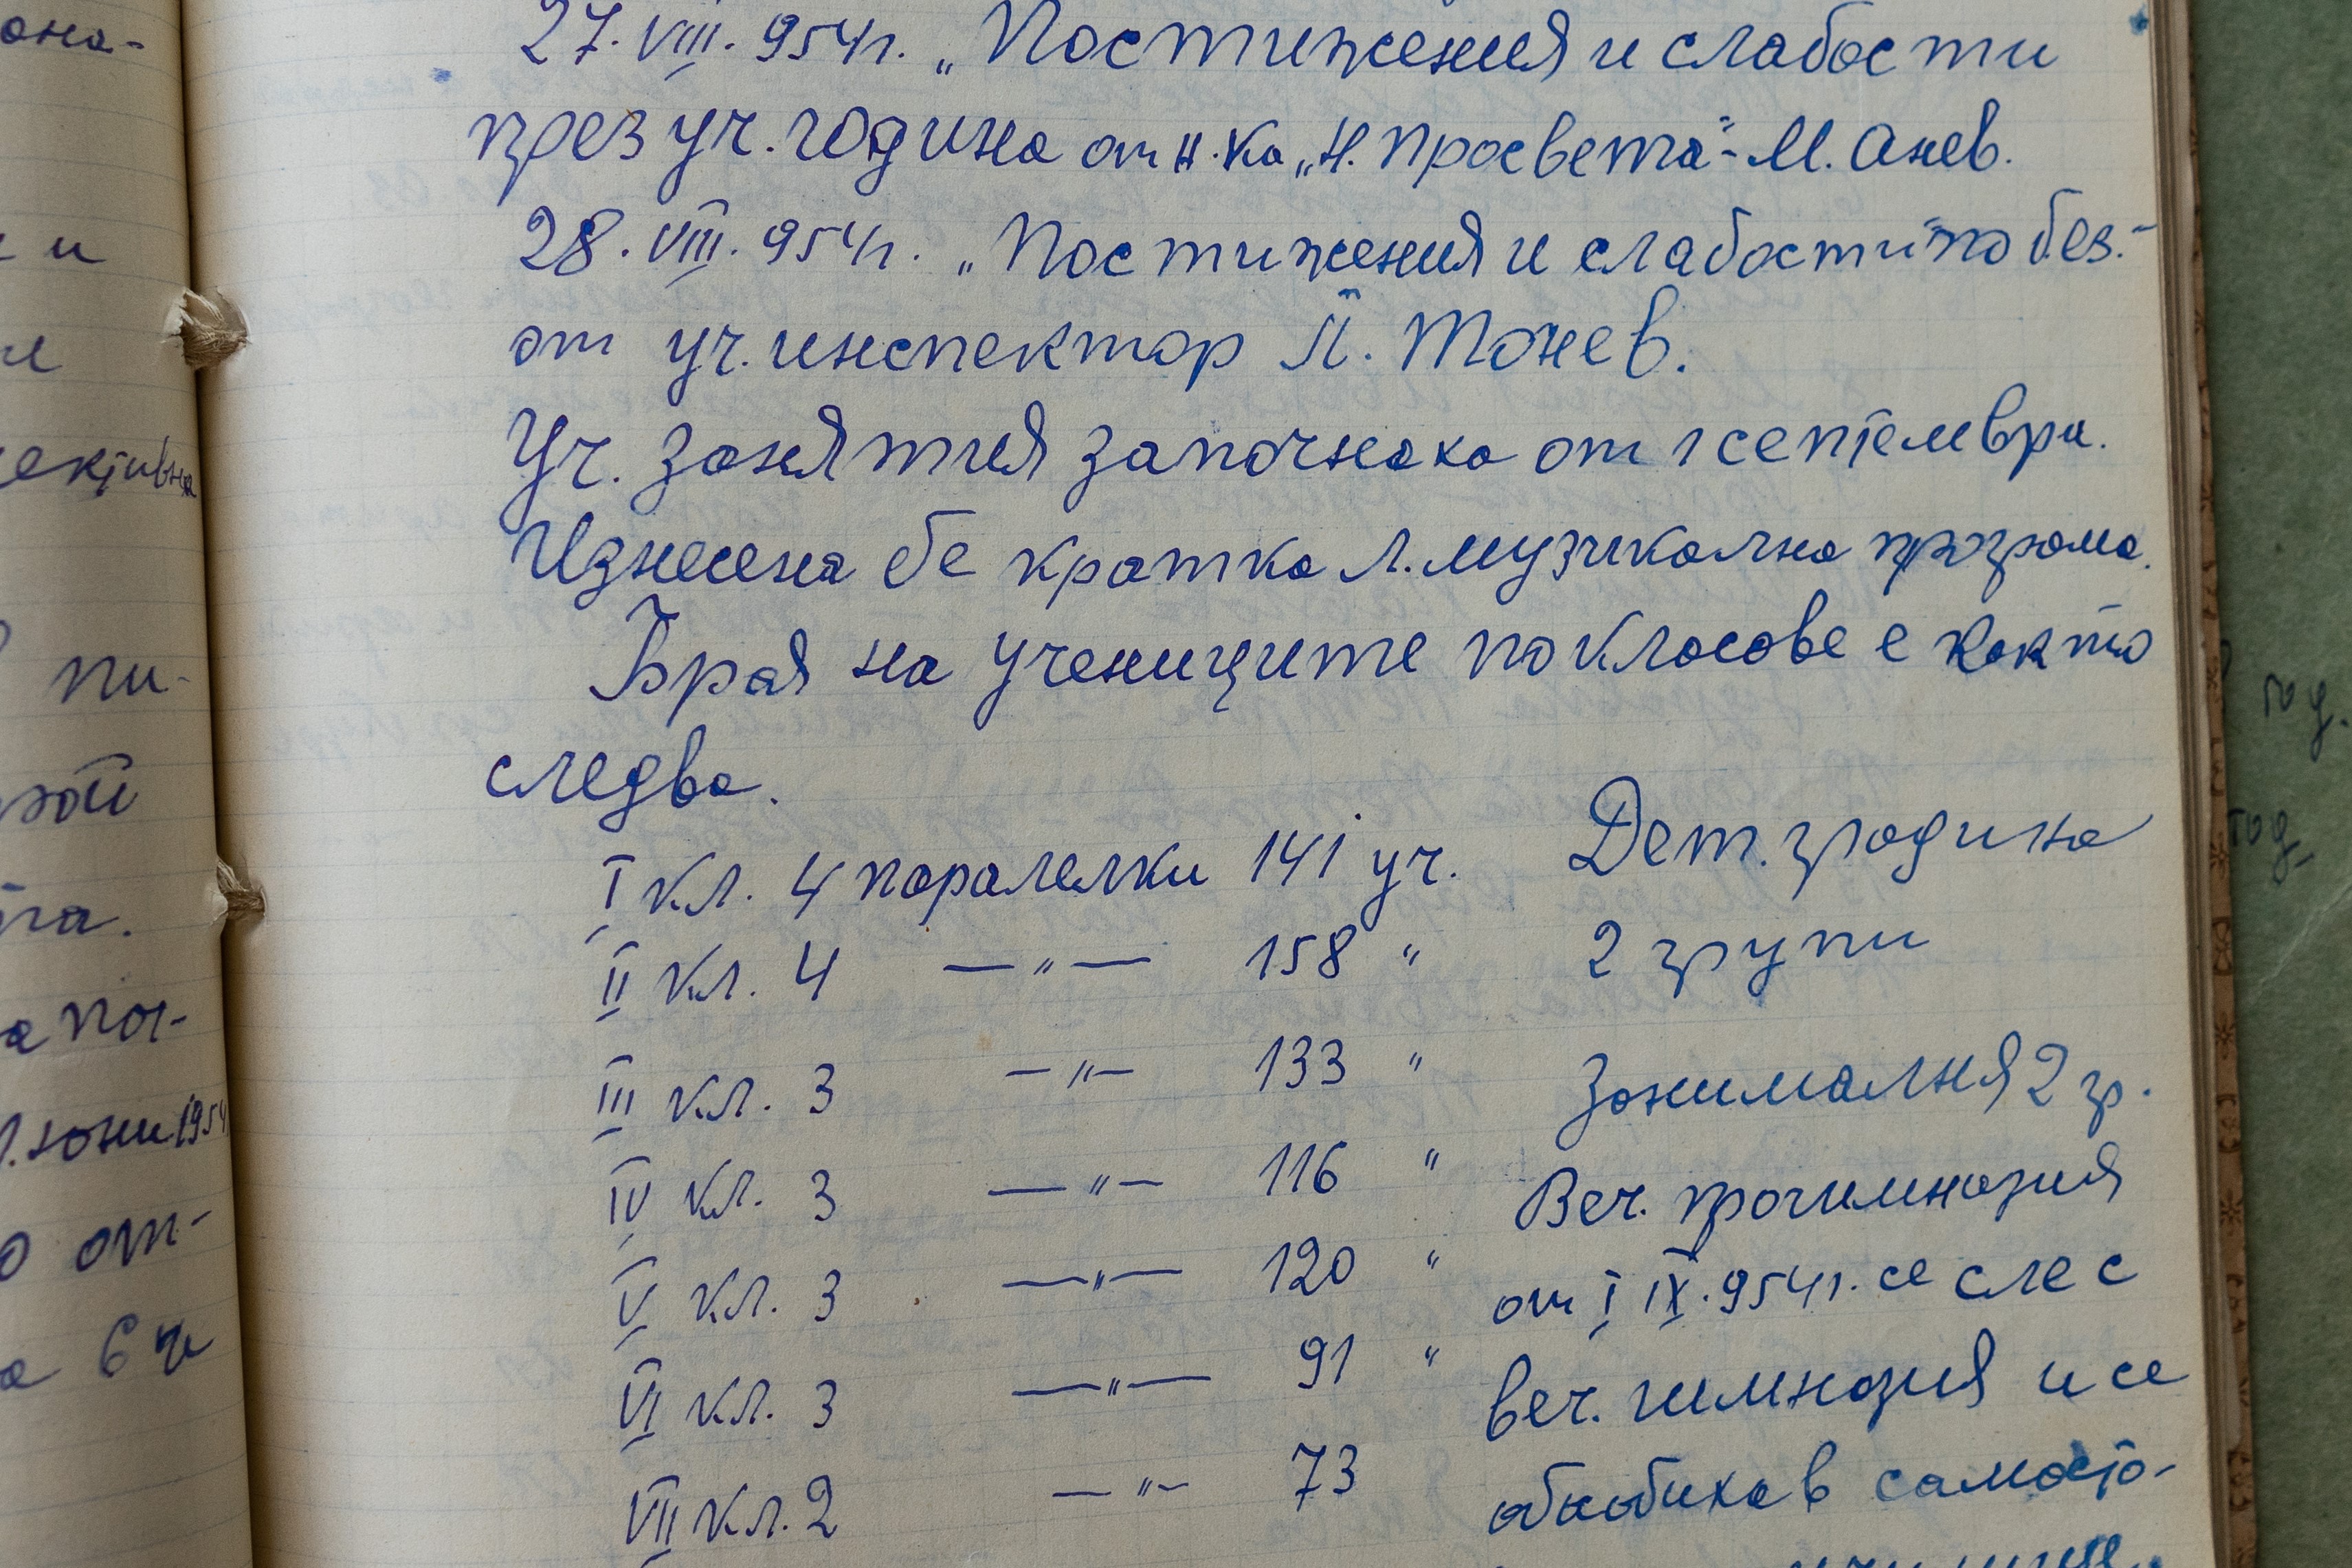 27. VIII. 954 г. „Постижения и слабости
през уч. година от н-ка „Н. просвета" - М. Анев.
28. VIII. 954 г. „Постижения и слабости" по без.-
от уч. инспектор П. Тонев.
Уч. занятия започнаха от 1 септември.
Изнесена бе кратка л. музикална програма.
Броя на учениците по класове е както
следва.
I кл. 4 паралелки 141 уч.
II кл. 4 —„— 158 „
III кл. 3 —„— 133 „
IV кл. 3 —„— 116 „
V кл. 3 —„— 120 „
VI кл. 3 —„— 91 „
VII кл. 2 —„— 73
Дет. градина
2 групи
Занималня 2 гр.
Веч. прогимназия
от I IX. 954 г. се сле с
веч. гимназия и се
обособиха в самосто-
она-
и
пи-
та.
а поч-
юни 1954
о от-
а 6 ч
год.
год.